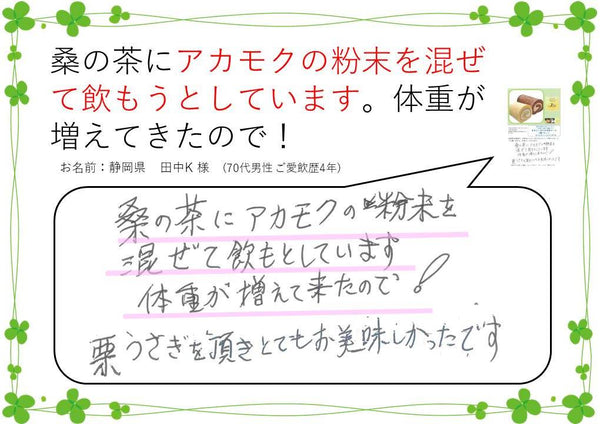 桑の茶にアカモクの粉末を混ぜ
て飲もうとしています。体重が
増えてきたので！
お名前：静岡県　田中K 様　(70代男性ご愛飲歴4年)
桑の茶にアカモクの粉末を
混ぜて飲もとしています
体重が増えて来たので！
栗うさぎを頂きとてもお美味しかったです